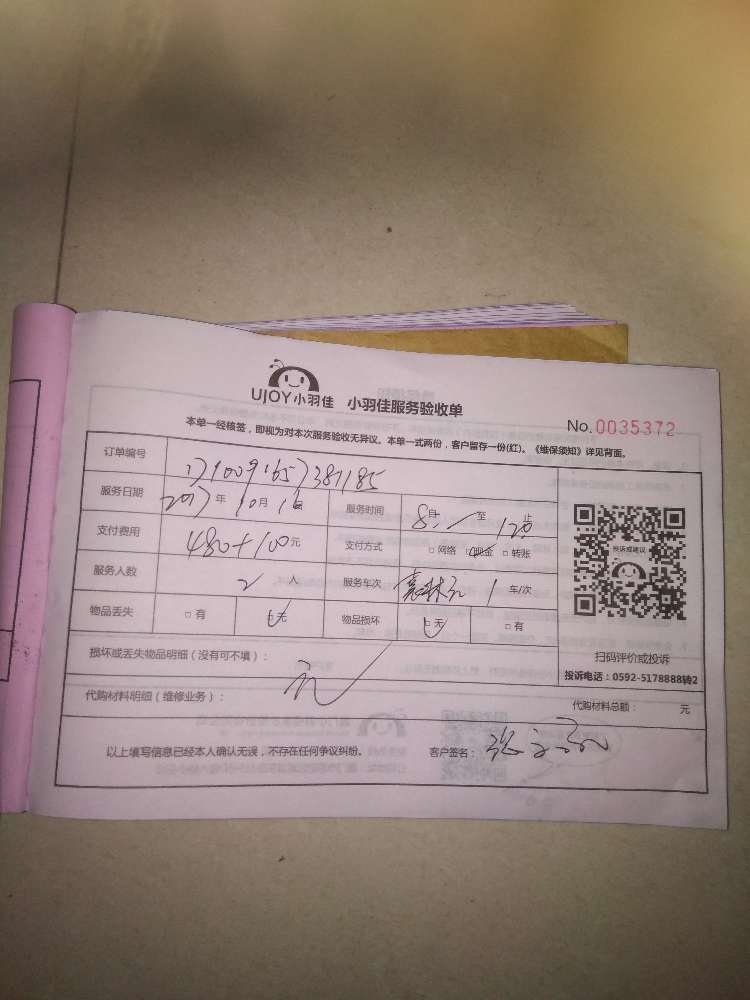 UJOY小羽佳 小羽佳服务验收单
No. 0035372
本单一经核签，即视为对本次服务验收无异议。本单一式两份，客户留存一份(红)。《维保须知》详见背面。
订单编号
服务日期 2017年10月16日 服务时间 8 自 至 12 止
支付费用 480+100元 支付方式 □网络 □现金 □转账
服务人数 2 人 服务车次 1 车/次
物品丢失 □有 □无 物品损坏 □无 □有
投诉或建议
扫码评价或投诉
投诉电话：0592-5178888转2
损坏或丢失物品明细（没有可不填）： 无
代购材料明细（维修业务）： 代购材料总额： 元
以上填写信息已经本人确认无误，不存在任何争议纠纷。 客户签名：